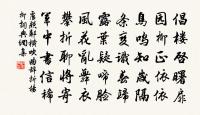 倡楼啓曙扉
園柳正依依
鳥鳴知歲隔
條變識春歸
露葉疑啼臉
風花亂舞衣
攀折聊將寄
軍中書信稀
盧照鄰橫吹曲辭折楊
柳詞典網書